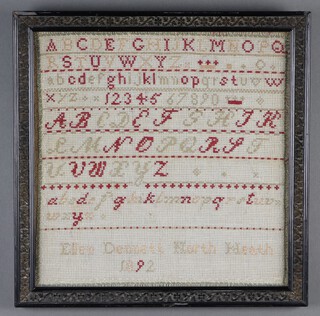 A B C D E F G H I J K L M N O P Q
R S T U V W X Y Z
a b c d e f g h i j k l m n o p q r s t u v w
x y z 1 2 3 4 5 6 7 8 9 0
A B C D E F G H I K
L M N O P Q R S T
U V W X Y Z
a b c d e f g h i j k l m n o p q r s t u v
w x y z
Ellen Dennett North Heath
1892